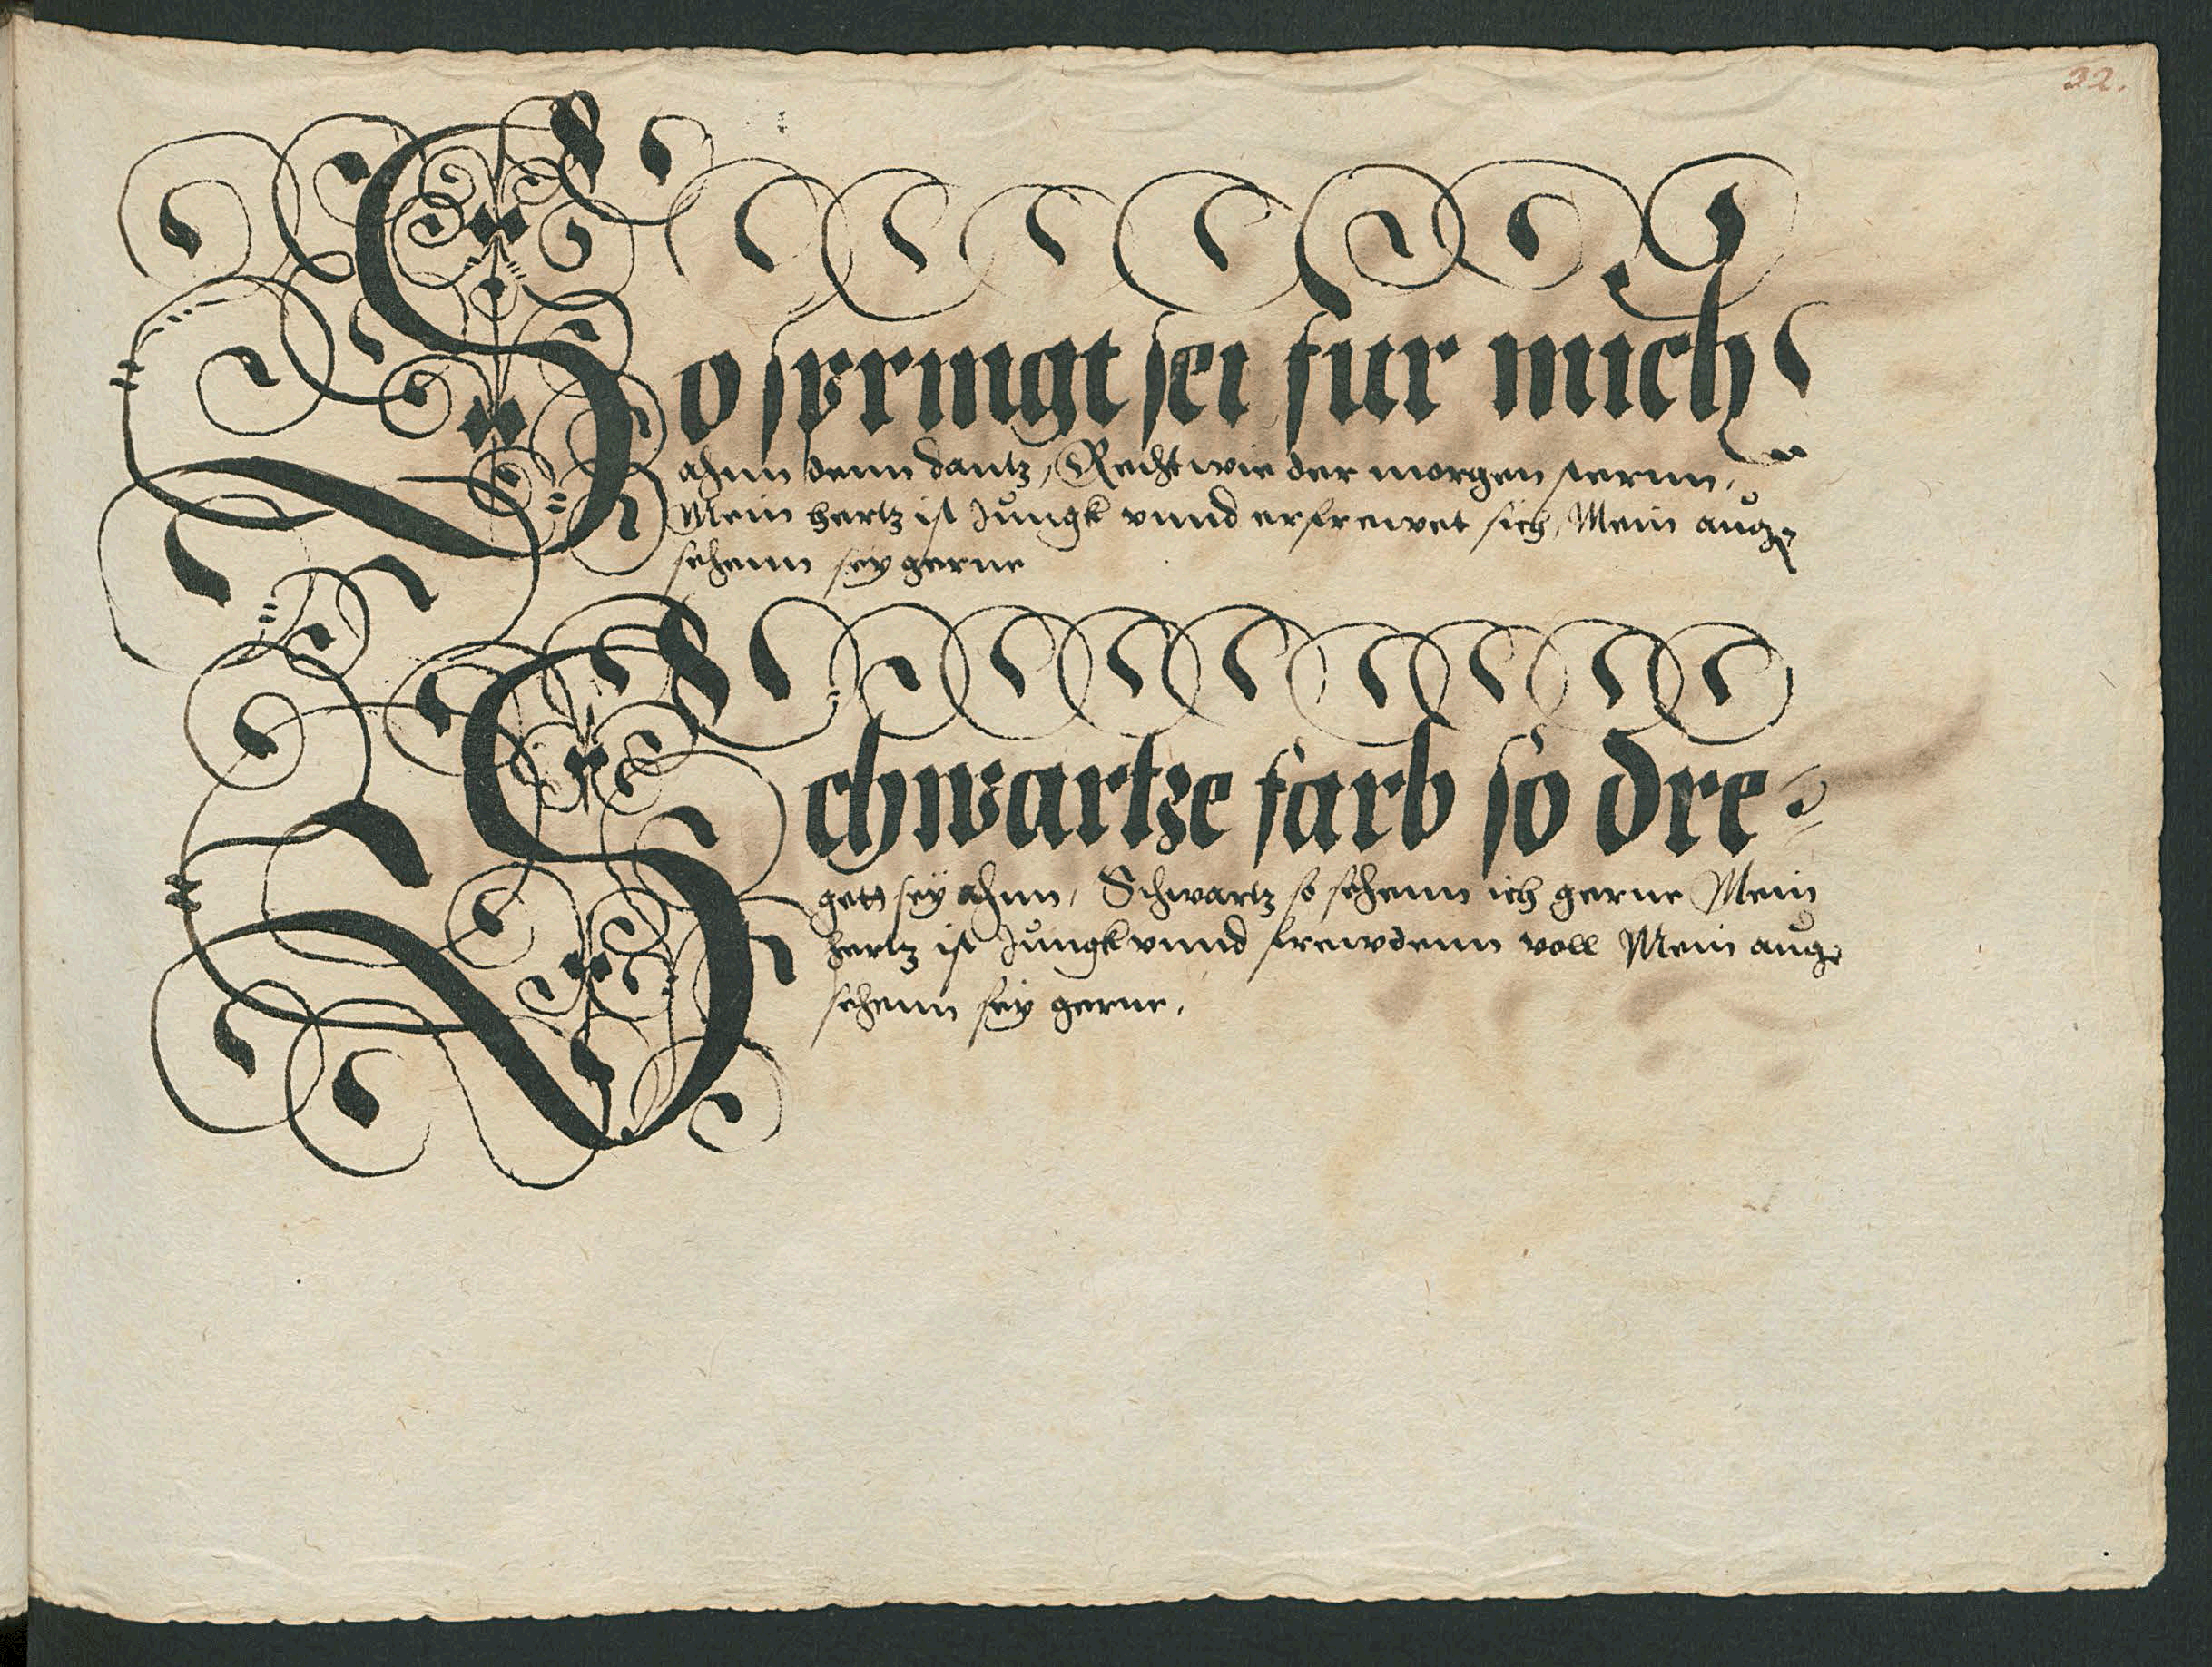 32.
So springt sei fur mich
ahnn denn dantz, Recht wie der morgen sternn,
Mein hertz ist Jungk vnnd erfrewet sich, Mein aug
sehenn sey gerne
Schwartze farb so dre-
gett sey ahnn, Schwartz so sehenn ich gerne Mein
hertz ist Jungk vnnd frewdenn voll Mein auge
sehenn sey gerne.